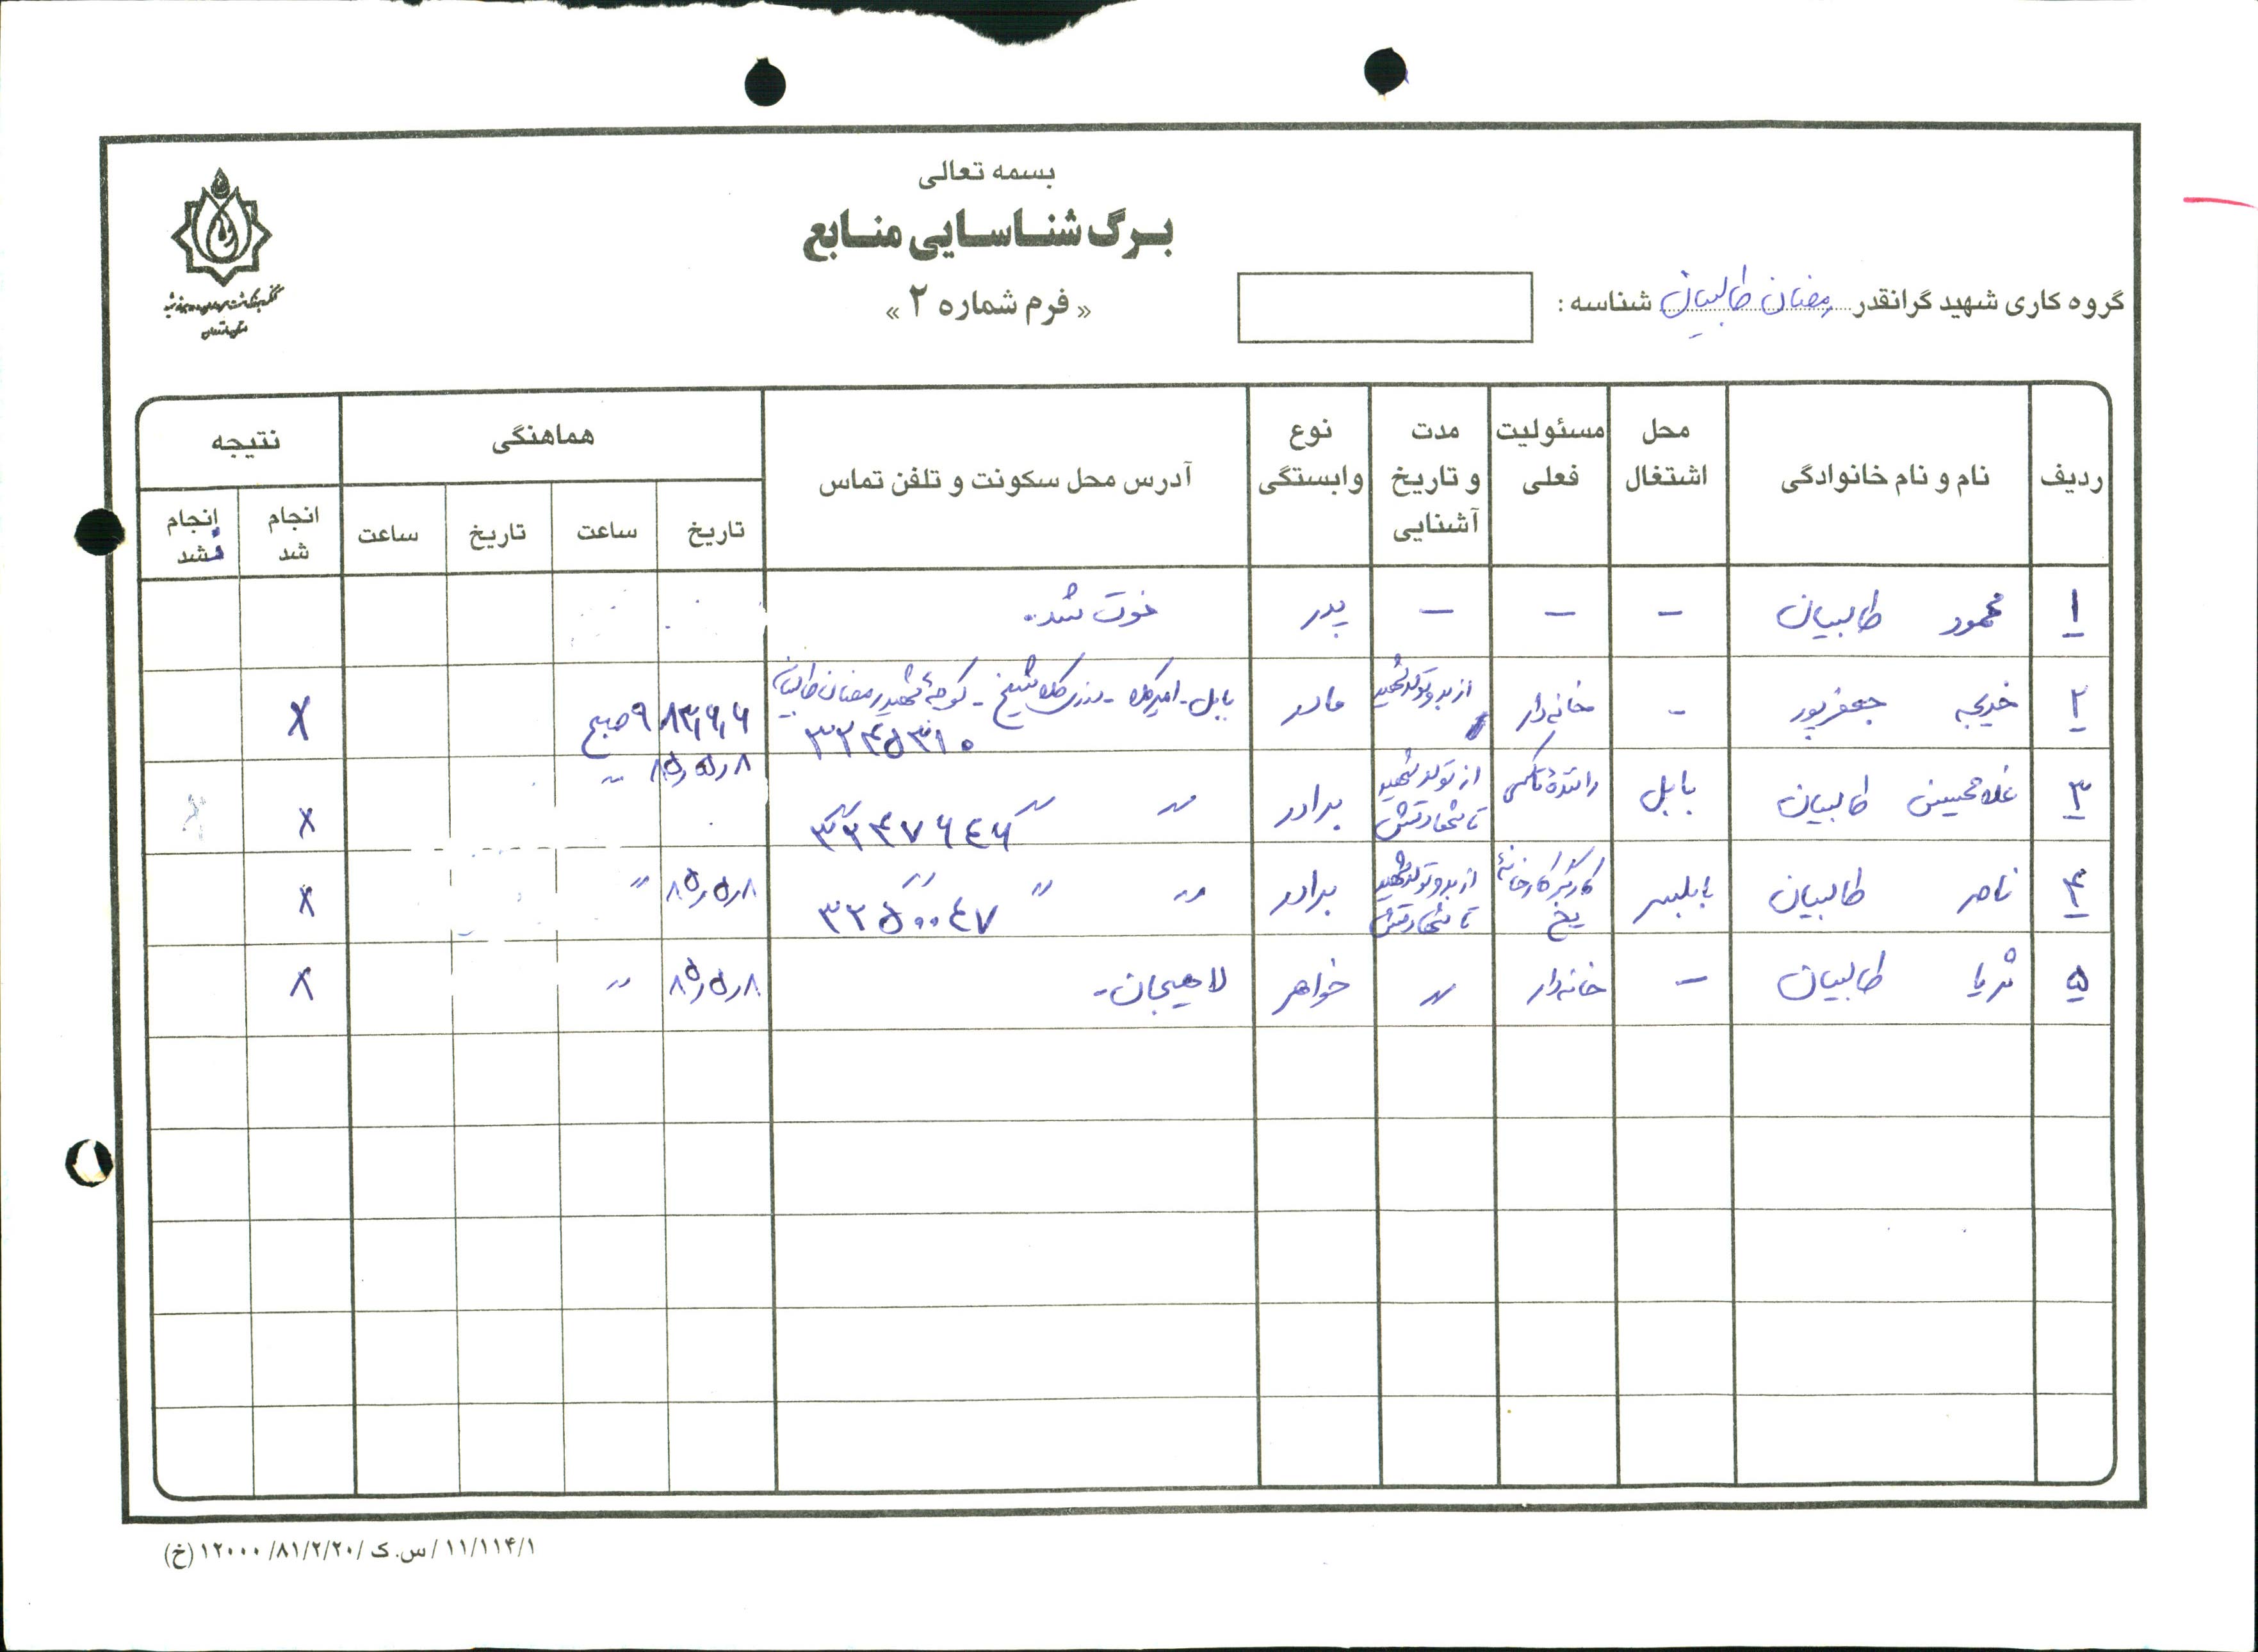 بسمه تعالی
برگ شناسایی منابع
« فرم شماره ۲ »
گروه کاری شهید گرانقدر رمضان طالبیان شناسه :
ردیف نام و نام خانوادگی محل اشتغال مسئولیت فعلی مدت و تاریخ آشنایی نوع وابستگی آدرس محل سکونت و تلفن تماس هماهنگی نتیجه
تاریخ ساعت تاریخ ساعت انجام شد انجام نشد
۱ محمود طالبیان - - - پدر فوت شده.
۲ خدیجه جعفرپور - خانه‌دار از بدو تولد شهید مادر بابل - امیرکلا - کلاشیخ - کوچهٔ شهید رمضان طالبیان ۳۲۴۵۳۱۰ ۸۳٫۶٫۶ ۹ صبح X
۳ غلامحسین طالبیان بابل رانندهٔ تاکسی از تولد شهید تا شهادتش برادر " " " ۳۲۴۷۶۴۶ ۸٫۵٫۸۵ " X
۴ ناصر طالبیان بابلسر کارگر کارخانهٔ یخ از بدو تولد شهید تا شهادتش برادر " " " ۳۲۵۰۰۴۷ ۸٫۵٫۸۵ " X
۵ ثریا طالبیان - خانه‌دار " خواهر لاهیجان - ۸٫۵٫۸۵ " X
۱۱/۱۱۴/۱ /س.ک /۸۱/۲/۲۰/ ۱۲۰۰۰ (خ)